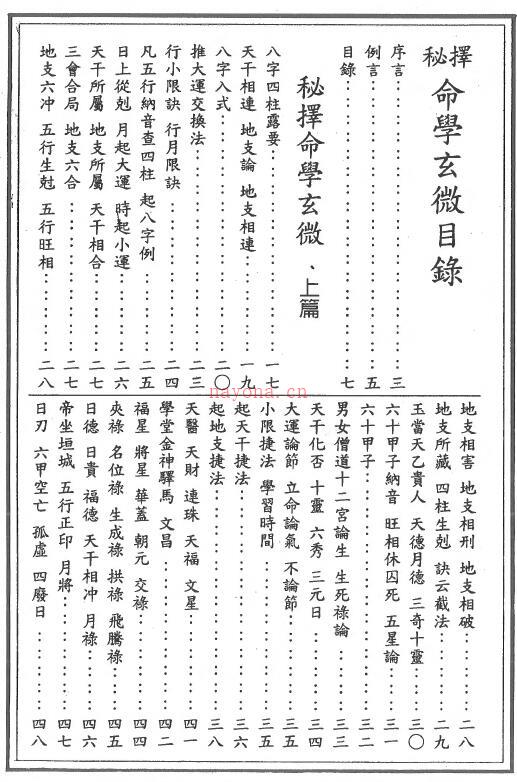 秘擇 命學玄微目錄
序言………三
例言………五
目錄………七
秘擇命學玄微、上篇
八字四柱露要………一七
天干相連 地支論 地支相連………一九
八字入式………二〇
推大運交換法………二三
行小限訣 行月限訣………二四
凡五行納音查四柱 起八字例………二五
日上從剋 月起大運 時起小運………二六
天干所屬 地支所屬 天干相合………二七
三會合局 地支六合………二七
地支六冲 五行生尅 五行旺相………二八
地支相害 地支相刑 地支相破………二八
地支所藏 四柱生剋 訣云截法………二九
玉當天乙貴人 天德月德 三奇十靈………三〇
六十甲子納音 旺相休囚死 五星論………三一
六十甲子………三二
男女僧道十二宮論生 生死祿論………三三
天干化否 十靈 六秀 三元日………三四
大運論節 立命論氣 不論節………三五
小限捷法 學習時間………三五
起天干捷法………三六
起地支捷法………三八
天醫 天財 連珠 天福 文星………四一
學堂金神驛馬 文昌………四二
福星 將星 華蓋 朝元 交祿………四四
夾祿 名位祿 生成祿 拱祿 飛騰祿………四五
日德 日貴 福德 天干相冲 月祿………四六
帝坐垣城 五行正印 月將………四七
日刃 六甲空亡 孤虛 四廢日………四八
nayona.cn